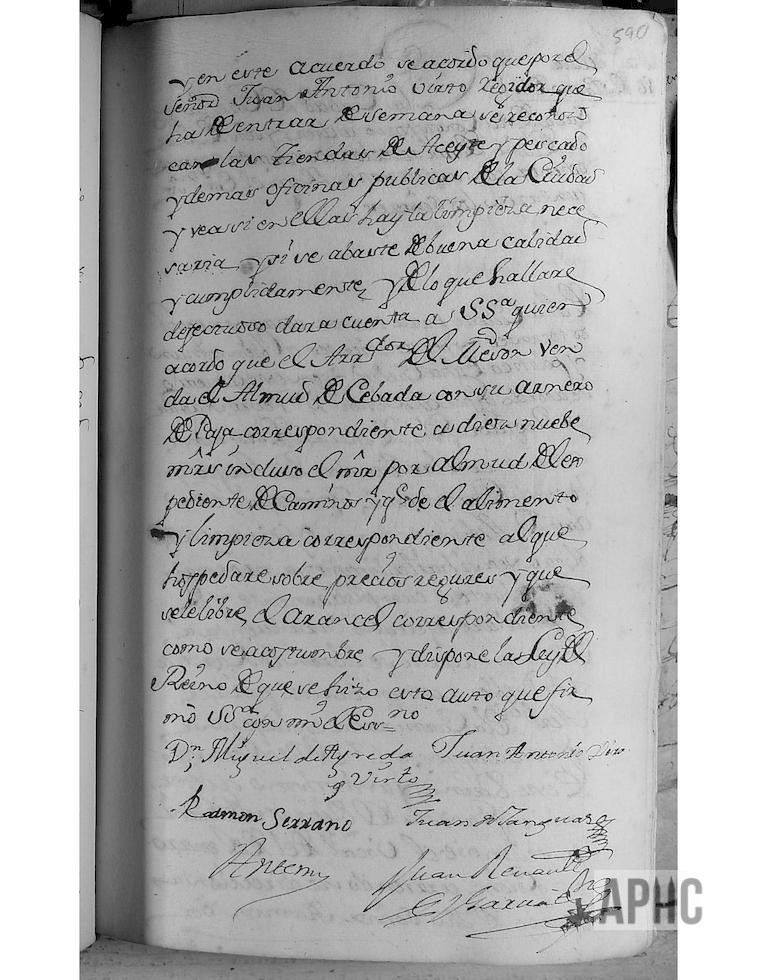 590
y en este acuerdo se acordo que por el
señor Juan Antonio Virto Regidor que
ha de entrar de semana se reconoz
can las tiendas de Aceyte y pescado
y demas oficinas publicas de la Ciudad
y vea si en ellas hay la limpieza nece
saria y si se abaste de buena calidad
y cumplidamente y de lo que hallare
defectuoso dara cuenta a SSª quien
acordo que el Arrdor del Meson ven
da el Almud de Cebada con su arnero
de Paja correspondiente a diez nuebe
mrs incluso el mr por almud del ex
pediente de Caminos y qe de el alimento
y limpieza correspondiente al que
hospedare sobre precios regures y que
sele libre el arancel correspondiente
como se acostumbre y dispone la Ley del
Reino de que se hizo este auto que fir
mo SSª con mi el Essno
Dn Miguel de Agreda Juan Antonio
y Virto
Ramon Serrano Juan de
Antemi Juan Renault
APHC